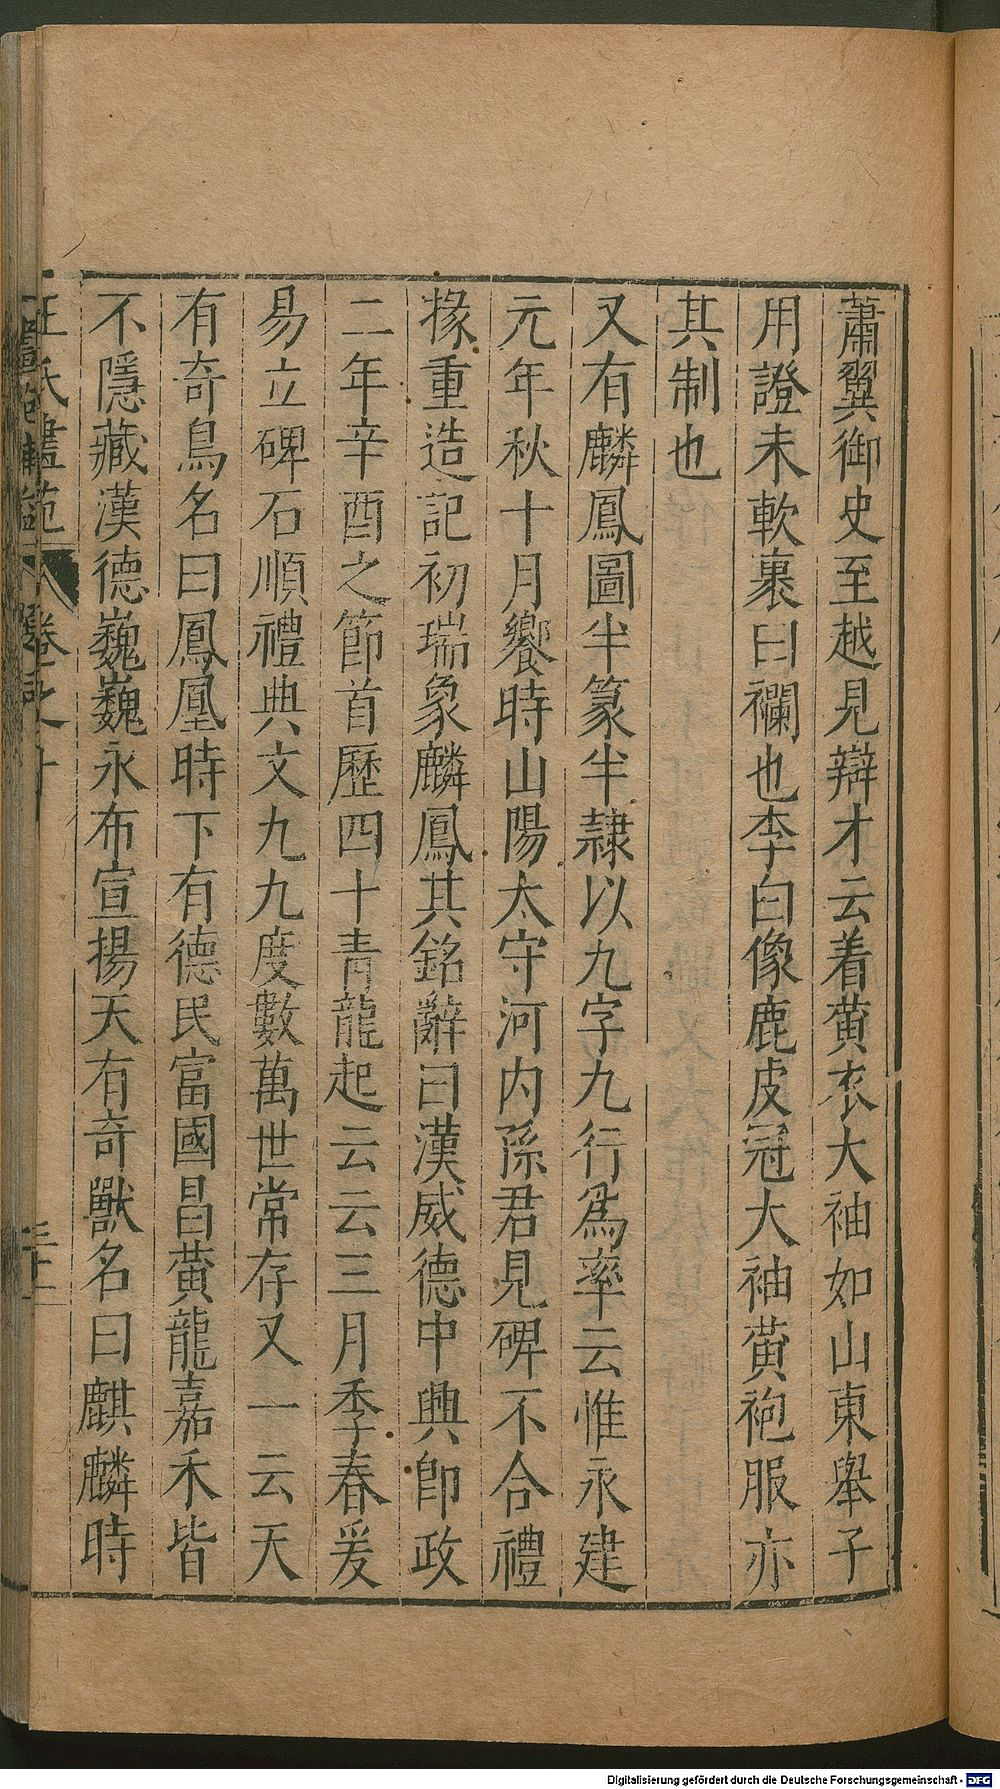 蕭翼御史至越見辯才云着黄衣大袖如山東舉子
用證未軟裹曰襴也李白像鹿皮冠大袖黄袍服亦
其制也
又有麟鳳圖半篆半隷以九字九行爲率云惟永建
元年秋十月饗時山陽太守河内孫君見碑不合禮
掾重造記初瑞象麟鳳其銘辭曰漢威德中興卽政
二年辛酉之節首歷四十青龍起云云三月季春爰
易立碑石順禮典文九九度數萬世常存又一云天
有奇鳥名曰鳳凰時下有德民富國昌黄龍嘉禾皆
不隱藏漢德巍巍永布宣揚天有奇獸名曰麒麟時
王氏畫苑 卷之十
Digitalisierung gefördert durch die Deutsche Forschungsgemeinschaft - DFG